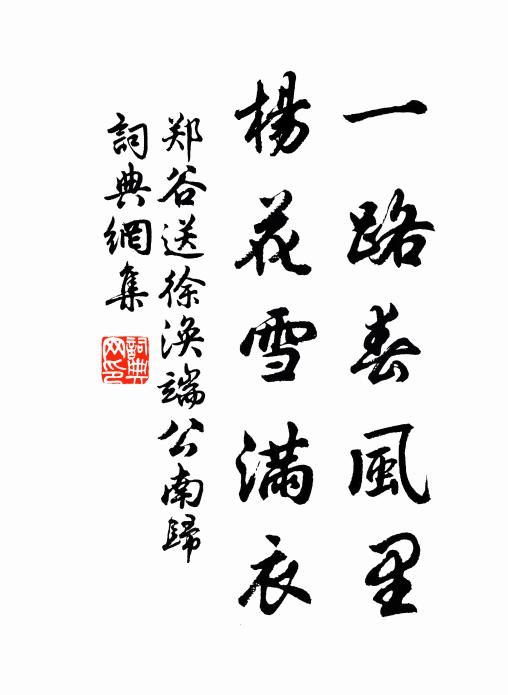 一路春風里
楊花雪滿衣
郑谷送徐渙端公南歸
詞典網集
詞典网印